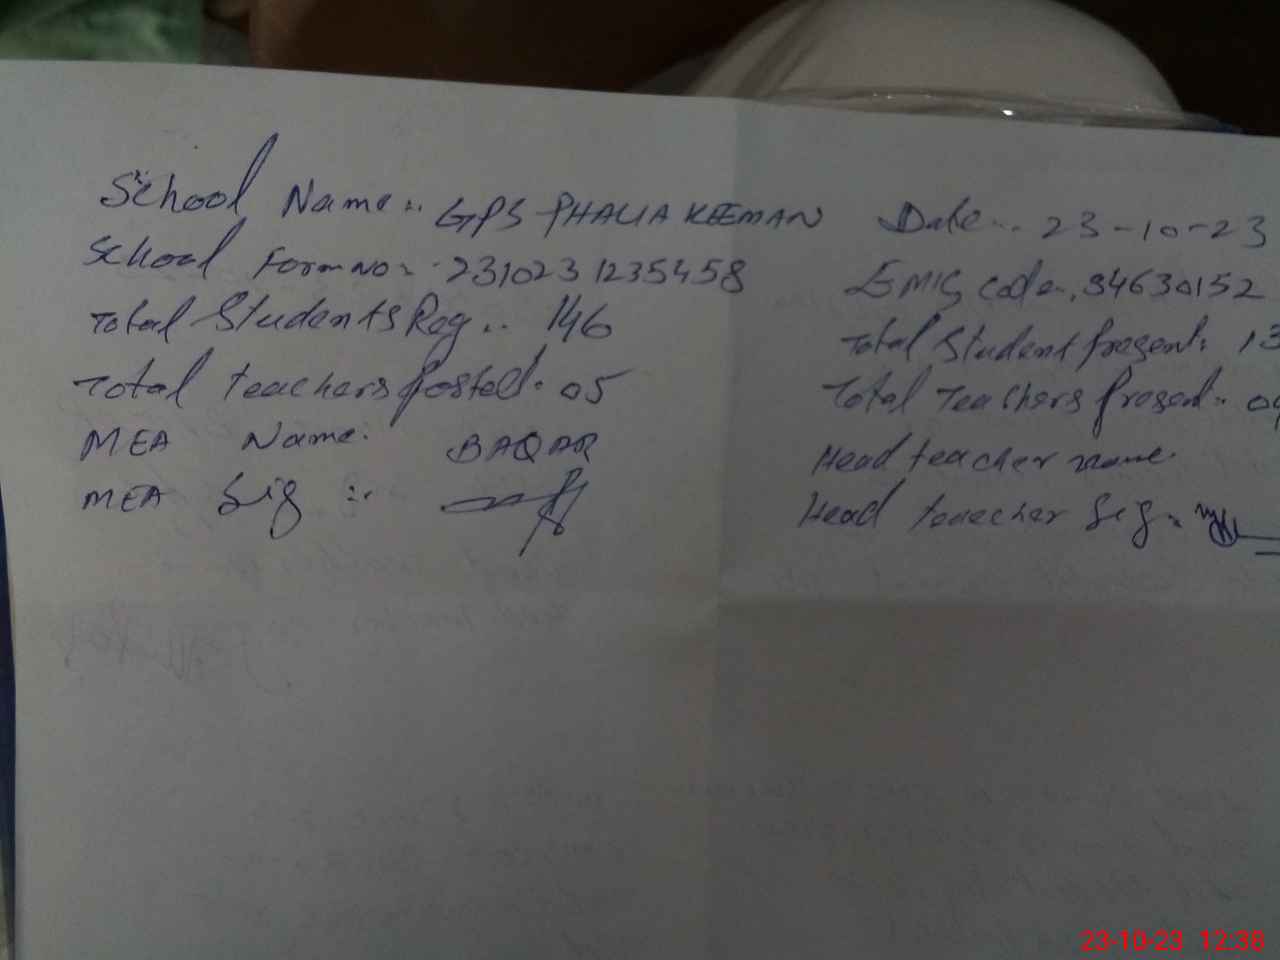 School Name:. GPS PHALIA KEEMAN Date:. 23-10-23
School Form No:. 2310231235458 EMIS code:. 34630152
Total Students Reg:. 146 Total Student Present: 13
Total teachers Posted: 05 Total Teachers Present:
MEA Name: BAQAR Head teacher name.
MEA Sig :. Head teaecher Sig:.
23-10-23 12:38